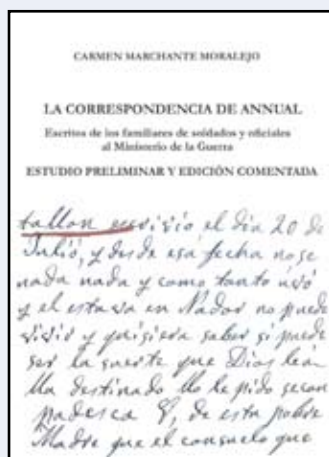 CARMEN MARCHANTE MORALEJO
LA CORRESPONDENCIA DE ANNUAL
Escritos de los familiares de soldados y oficiales
al Ministerio de la Guerra
ESTUDIO PRELIMINAR Y EDICIÓN COMENTADA
tallon escrivio el dia 20 de
Julio, y desde esa fecha no se
nada nada y como tanto
y el estava en Nador no puede
vivir y quisiera saber si puede
ser la suerte que Dios
lla destinado Ud le pido
padesca de esta pobre
Madre que el consuelo que